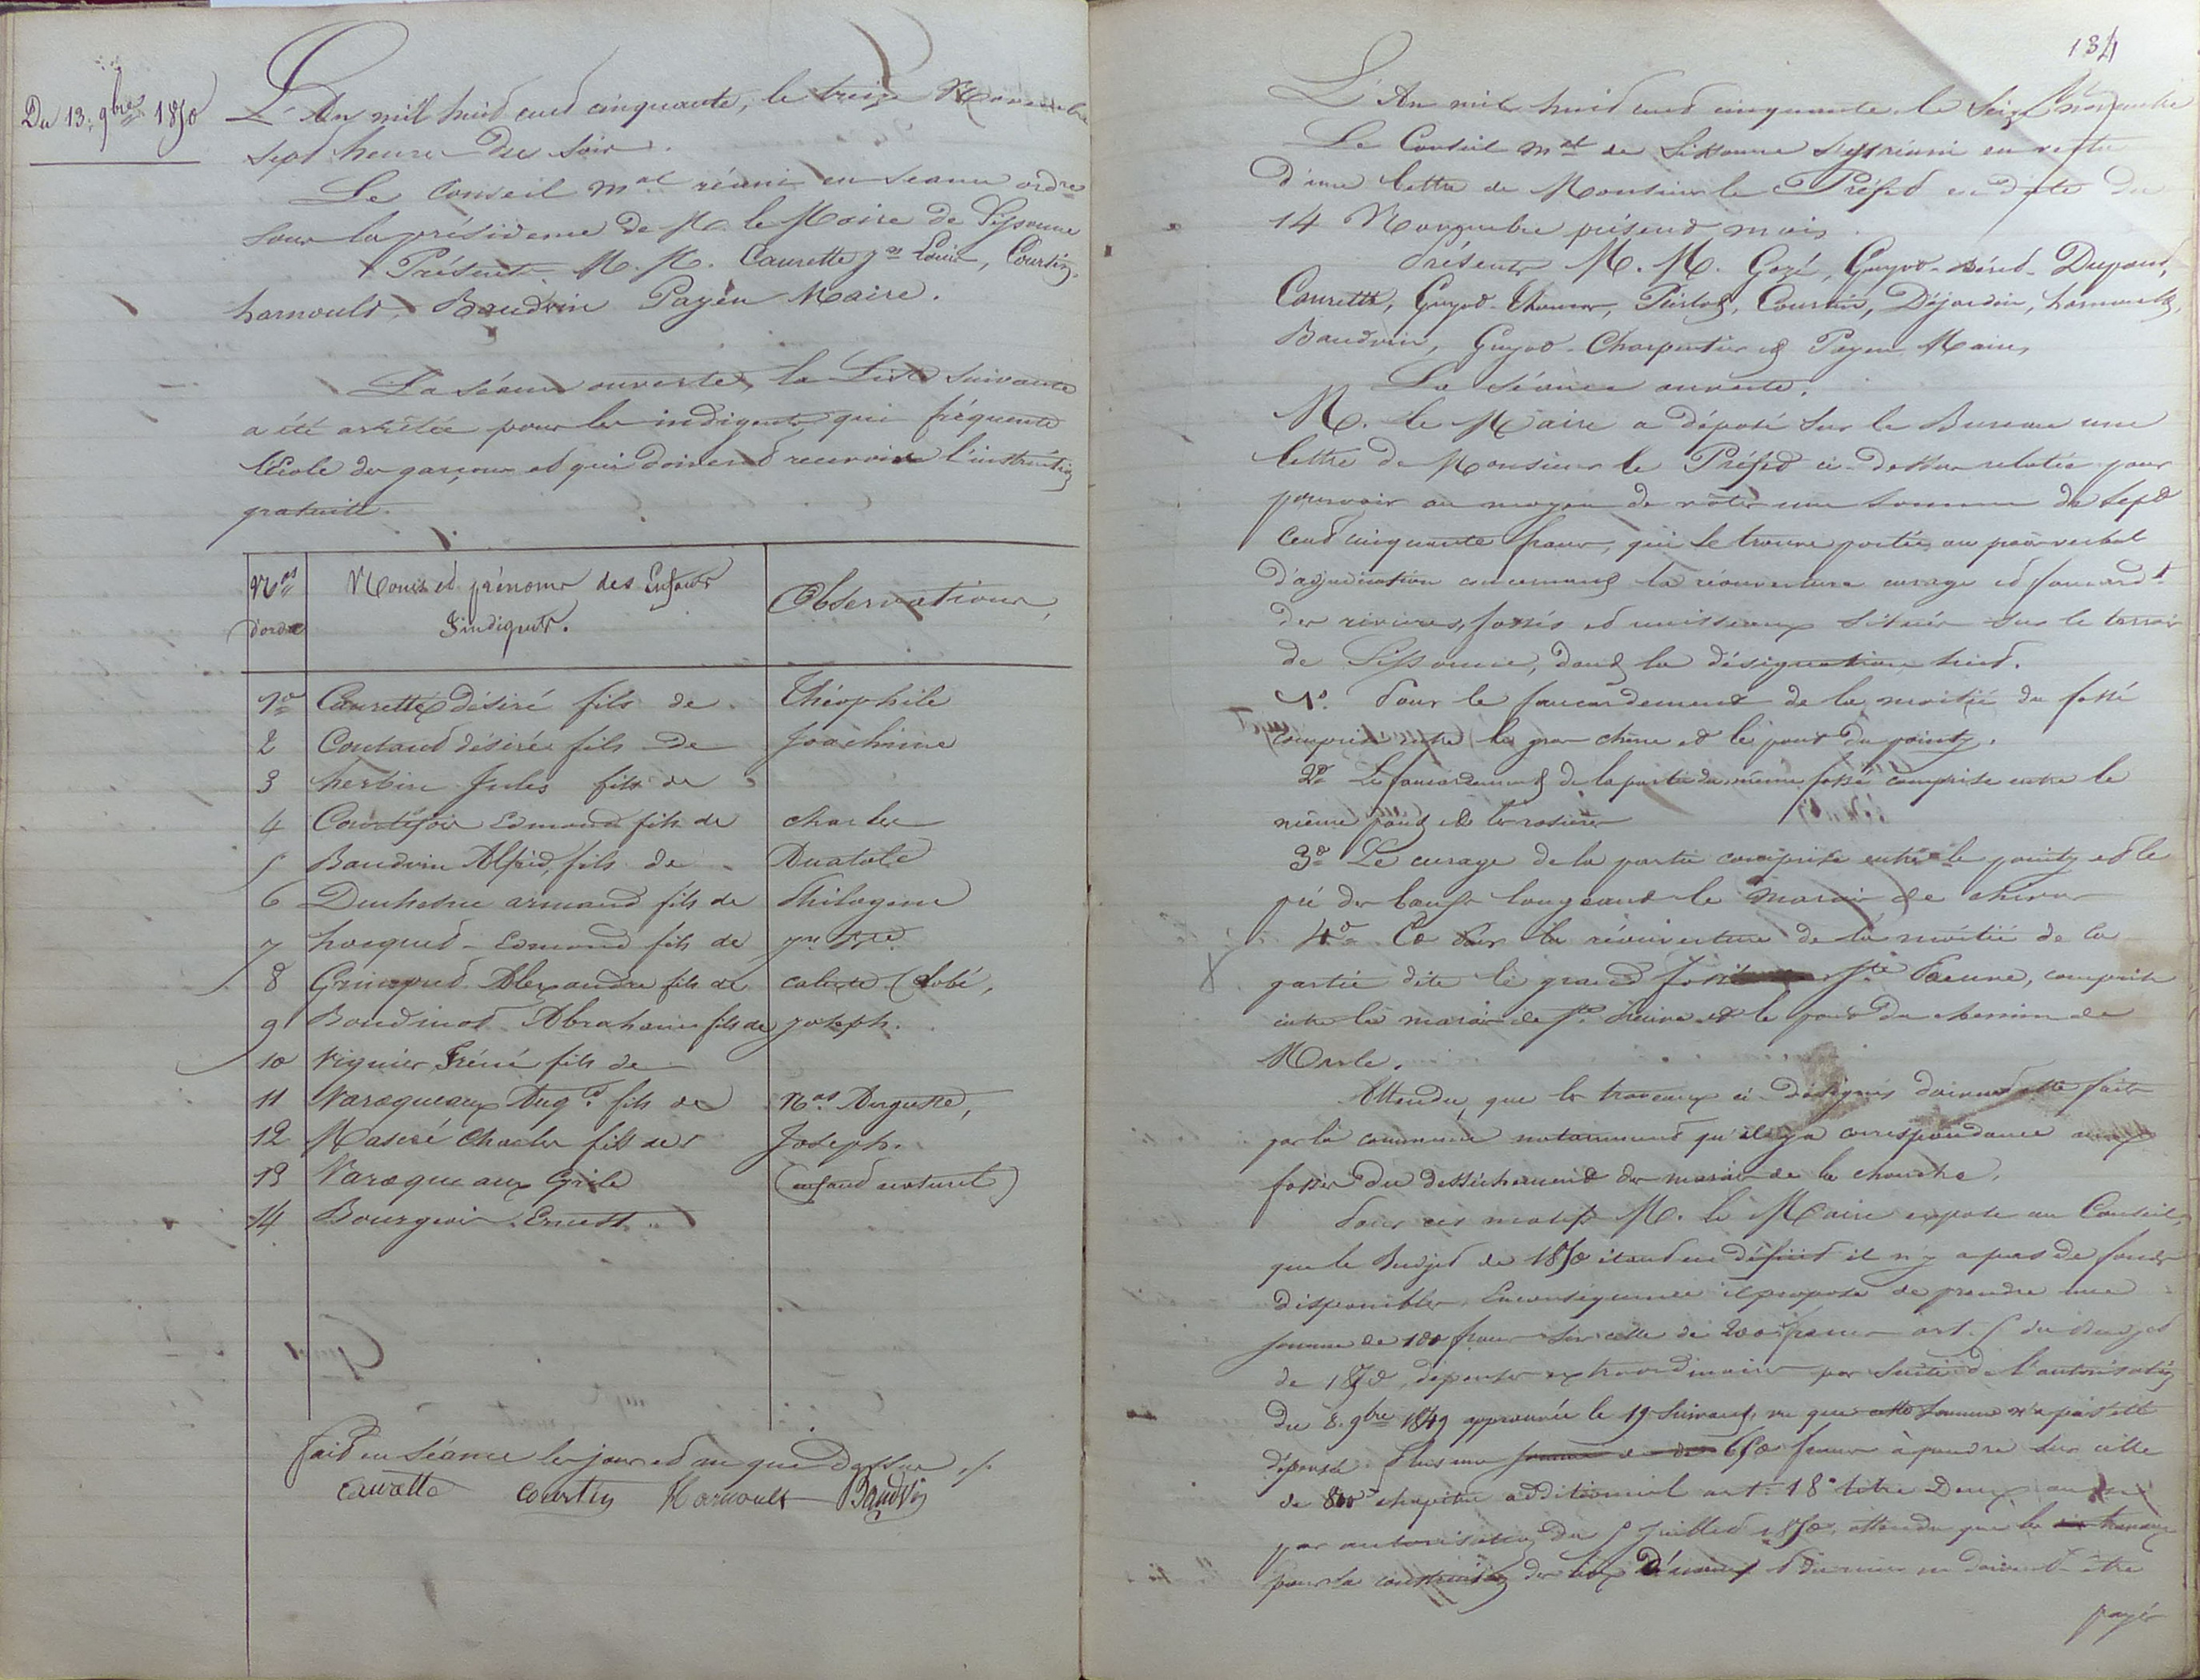 Du 13. 9bre 1850
L'An mil huit cent cinquante, le treize Novembre
sept heures du soir.
Le Conseil mal réuni en séance ordre
sous la présidence de M. le Maire de Sissonne
Présents M. M. Caurette, Courtin,
harnould, Baudvin Payen Maire.
La séance ouverte, la Liste suivante
a été arrêtée pour les indigents qui fréquente
l'Ecole des garçons et qui doivent recevoir l'instruction
gratuite.
Nos d'ordre
Noms et prénoms des Enfants Indigents.
Observations
1o Caurette désiré fils de Théophile
2 Coutant désirée fils de Joachime
3 herbin Jules fils de
4 Courtefois Edmond fils de charles
5 Baudvin Alfred, fils de Anatole
6 Duchesne armand fils de Philogene
7 hocquet Edmond fils de
8 Grimpret Alexandre fils de caliste (lobé,
9 Boudinot Abraham fils de joseph.
10 Vignier Iréné fils de
11 Varoqueaux Augte fils de Nas Auguste,
12 Maseré Charles fils de Joseph.
13 Varoqueaux Cyrile (enfant naturel)
14 Bourgeois Ernest
fait en séance les jour et an que Dessus ./.
Caurette Courtin Harnoult Baudvin
134
L'An mil huit cent cinquante le Seize novembre
Le Conseil mal de Sissonne s'est réuni en vertu
d'une lettre de Monsieur le Préfet en date du
14 Novembre présent mois.
Présents M. M. Gozé, Guyot-Béret-Dupont,
Caurette, Guyot-Thomas, Courtin, Déjardin, harnould,
Baudvin, Guyot-Charpentier et Payen Maire,
La séance ouverte.
M. le Maire a déposé sur le Bureau une
lettre de Monsieur le Préfet ci-dessus relatée pour
pourvoir au moyen de voter une somme de sept
cent cinquante francs, qui se trouve portée au procès verbal
d'ajudication concernant la réouverture curage et faucardt
des rivieres, fossés et ruisseaux situés sur le terroir
de Sissonne, dont la désignation suit.
1o. Pour le faucardement de la moitié du fossé
compris entre le gros chêne et le pont du pointy.
2o Le faucardement de la partie du même fossé comprise entre le
même pont et les rosières
3o Le curage de la partie comprise entre le pointy et le
pré des longeant le Marais de chivres
4o Ce sur la réouverture de la moitié de la
partie dite le grand fossé Ste Preuve, comprise
entre le marais de Ste Preuve et le pont du chemin de
Marle.
Attendu, que les travaux ci-désignés doivent être faits
par la commune notamment qu'il y a correspondance aux
fossés du desséchement des marais de la chouche.
Pour ces motifs M. le Maire expose au Conseil,
que le Budjet de 1850 étant en déficit il n'y a pas de fonds
disponibles, Enconséquence il propose de prendre une
somme de 100 francs sur celle de 200 francs art. 5 du Budjet
de 1850, dépenses extraordinaires par suite de l'autorisation
du 8. 9bre 1849 approuvée le 19 Suivant, vu que cette somme n'a pas été
dépensée. Plus une somme de 650 francs à prendre sur celle
de 800 chapitre additionnel art. 18 titre Deux
par autorisation du 5 Juillet 1850, attendu que les travaux
pour la construction des ne doivent être
payés